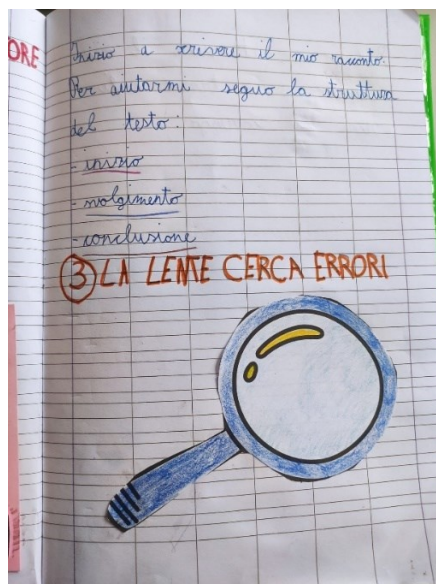 ORE
Inizio a scrivere il mio racconto.
Per aiutarmi seguo la struttura
del testo:
- inizio
- svolgimento
- conclusione
3 LA LENTE CERCA ERRORI